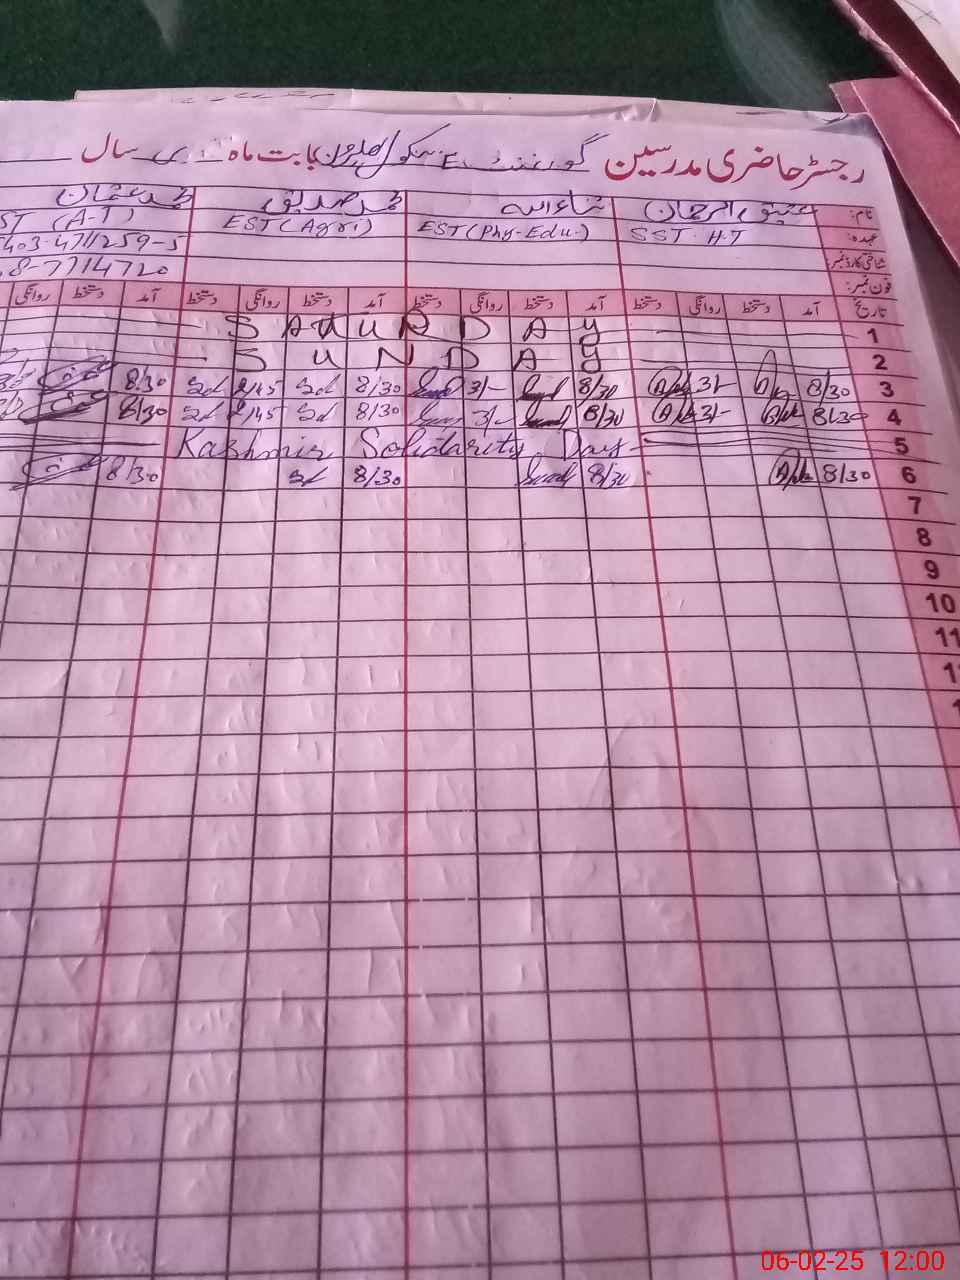 رجسٹر حاضری مدرسین گورنمنٹ سکول بابت ماہ سال
نام: عتیق الرحمان ثناء اللہ محمد صدیق محمد عثمان
عہدہ: SST. H.T EST (Phy-Edu.) EST (Agri) ST (A-T)
شناختی کارڈ نمبر: 403-4711259-5
فون نمبر: 8-7714720
تاریخ آمد دستخط روانگی دستخط آمد دستخط روانگی دستخط آمد دستخط روانگی دستخط آمد دستخط روانگی
1 SATURDAY
2 SUNDAY
3 8/30 3/- 8/30 3/- 8/30 Sd 2/45 Sd 8/30
4 8/30 3/- 8/30 3/- 8/30 Sd 2/45 Sd 8/30
5 Kashmir Solidarity Day
6 8/30 8/30 8/30 Sd 8/30
7
8
9
10
11
06-02-25 12:00